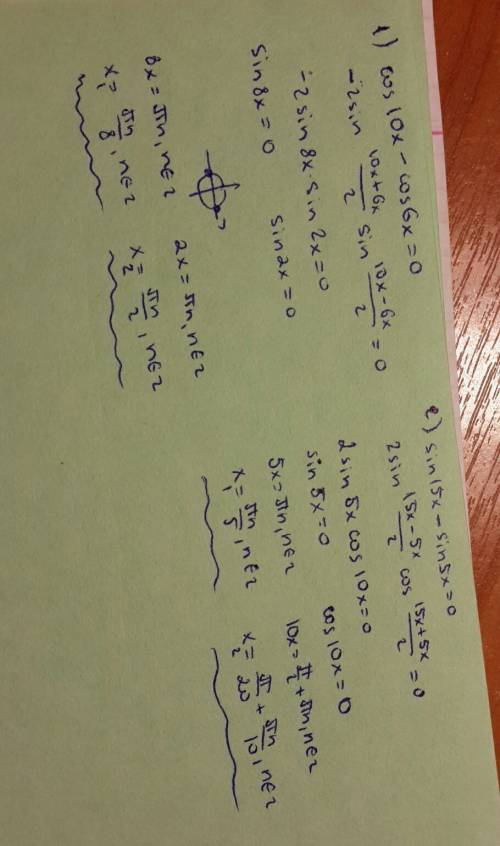 1) cos10x - cos6x = 0
-2sin (10x+6x)/2 sin (10x-6x)/2 = 0
-2sin 8x · sin 2x = 0
sin8x = 0 sin2x = 0
8x = πn, n∈z 2x = πn, n∈z
x₁ = πn/8, n∈z x₂ = πn/2, n∈z
2) sin15x - sin5x = 0
2sin (15x-5x)/2 cos (15x+5x)/2 = 0
2 sin 5x cos 10x = 0
sin 5x = 0 cos 10x = 0
5x = πn, n∈z 10x = π/2 + πn, n∈z
x₁ = πn/5, n∈z x₂ = π/20 + πn/10, n∈z